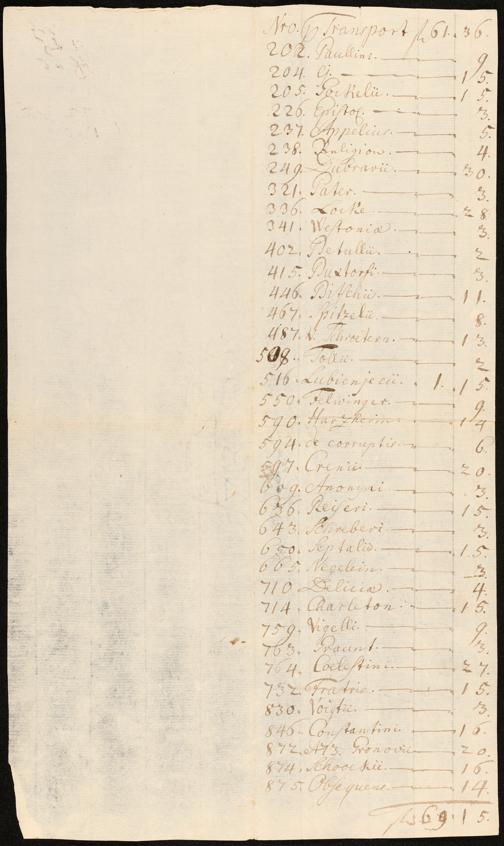 Nro. Transport 61. 36.
202. Paullini. 9.
204. Ej. 15.
205. Poekelii. 15.
226. Epistol. 3.
237. Appelius. 5.
238. Religion. 4.
249. Lubravii. 30.
321. Pater. 3.
336. Locke. 28.
341. Westoniæ. 3.
402. Betulii. 2
415. Buxtorfi. 3.
446. 11.
467. Spitzelii. 8.
487. v. 13.
508. Tollii. 2
516. Lubienjecii. 1. 15
550. Felwinger. 9.
590. 14
594. de corruptio 6.
597. Crenii. 20.
609. Anonymi. 3.
636. Reiseri. 15
643. Schreberi. 3.
650. Septalid. 15.
665. Negelein. 3.
710. Deliciæ. 4.
714. Charleton. 15.
759. Vigelli. 9.
763. Praunt. 3.
764. Coelestini. 27.
732. Fratris. 15.
830. Voigtii. 3.
846. Constantini 16.
872. 873. Gronovii 20.
874. Schookii. 16.
875. Obsequens. 14.
69. 15.